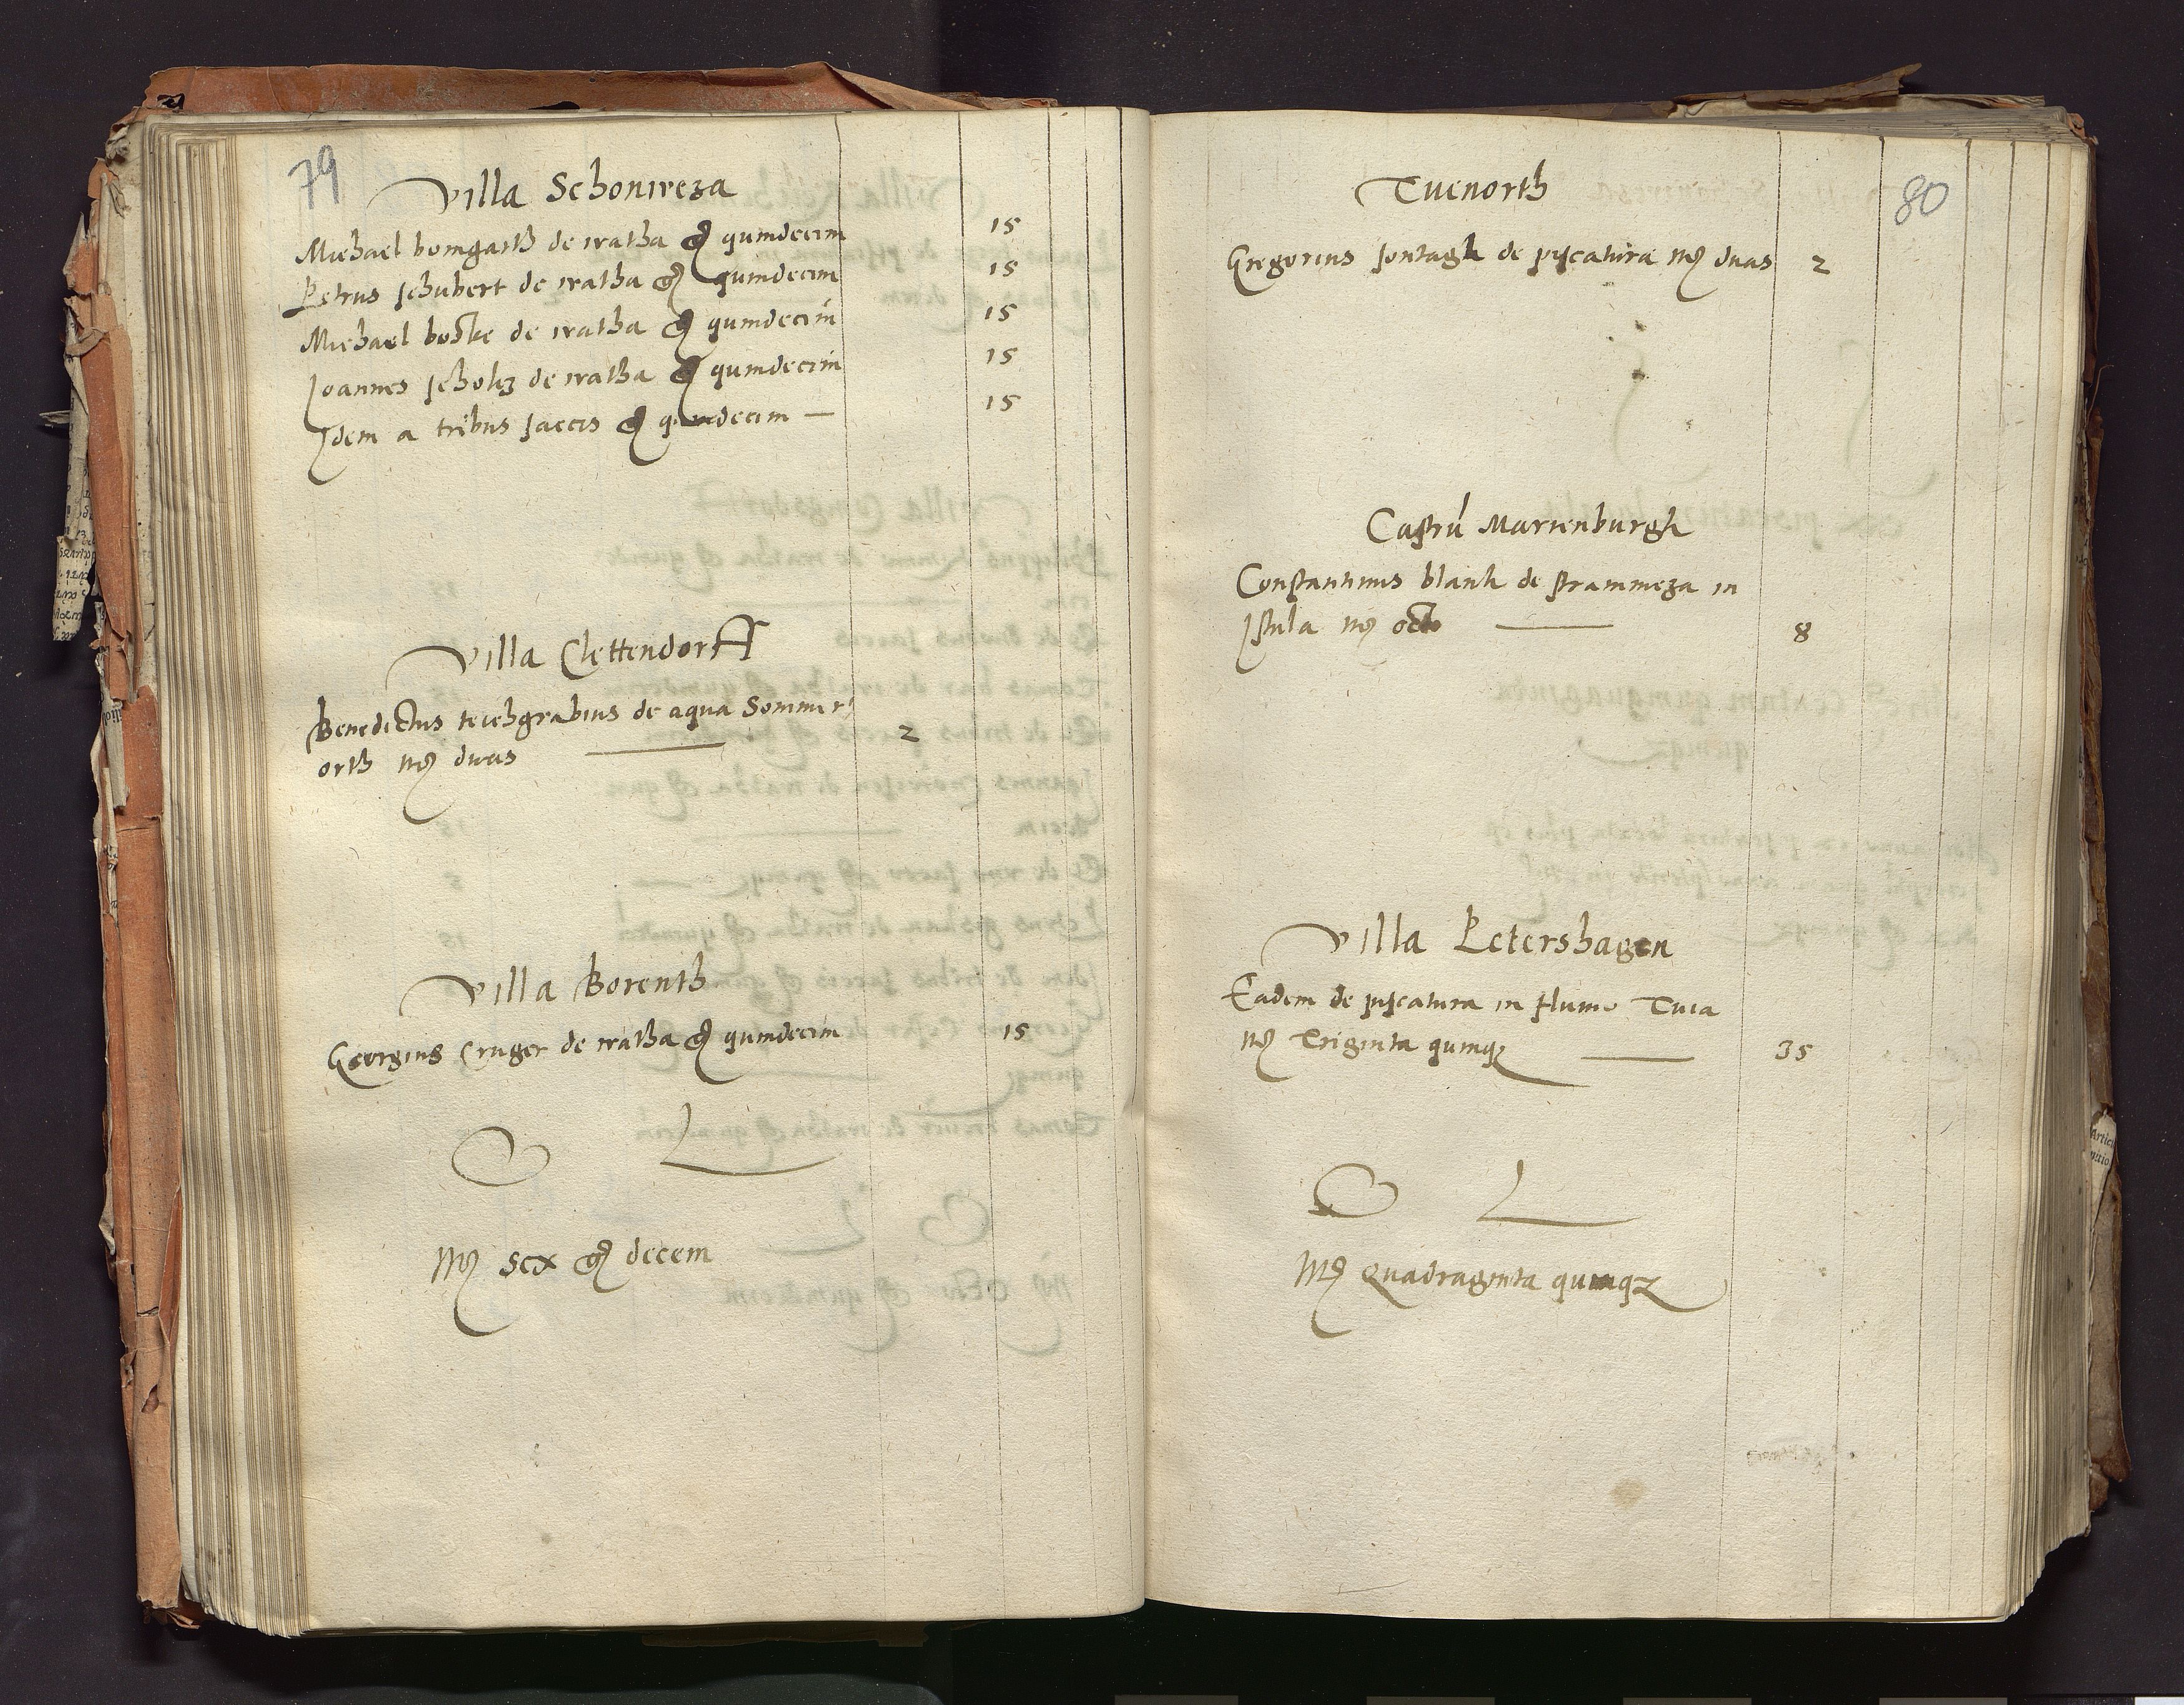 79
Villa Schonweza
Michael bomgarth de watha gr quindecim 15
Petrus schubert de watha gr quindecim 15
Michael boske de watha gr quindecim 15
Joannes scholcz de watha gr quindecim 15
Idem a tribus saccis gr quindecim — 15
Villa Clettendorff
Benedictus teichgrabius de aqua Sommer
orth mr duas — 2
Villa Borenth
Georgius Cruger de watha gr quindecim 15
Mr sex gr decem
80
Tuenorth
Gregorius sontagk de piscatura mr duas 2
Castrú Marienburgk
Constantinus blank de strammeza in
Istula mr octo — 8
Villa Petershagen
Eadem de piscatura in flumo Tuia
mr Triginta quinq — 35
Mr Quadraginta quinq